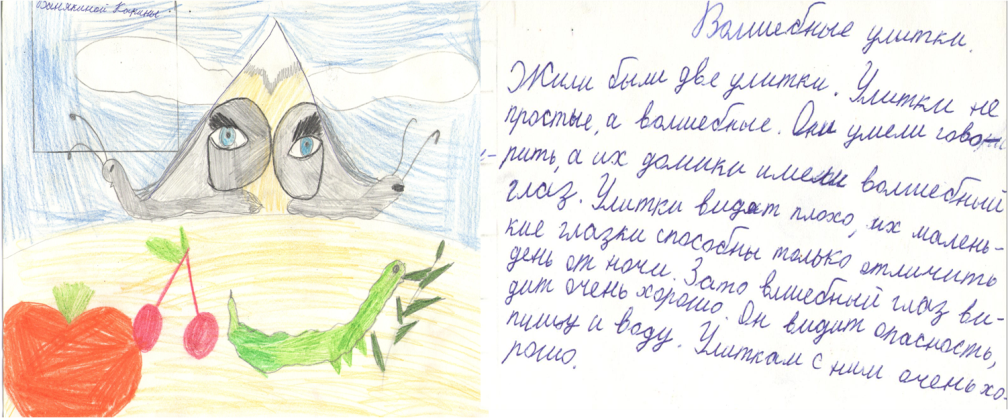 Волшебные улитки.
Жили были две улитки. Улитки не
простые, а волшебные. Они умели гово-
рить, а их домики имели волшебный
глаз. Улитки видят плохо, их малень-
кие глазки способны только отличить
день от ночи. Зато влшебный глаз ви-
дит очень хорошо. Он видит опасность,
пищу и воду. Улиткам с ним очень хо-
рошо.